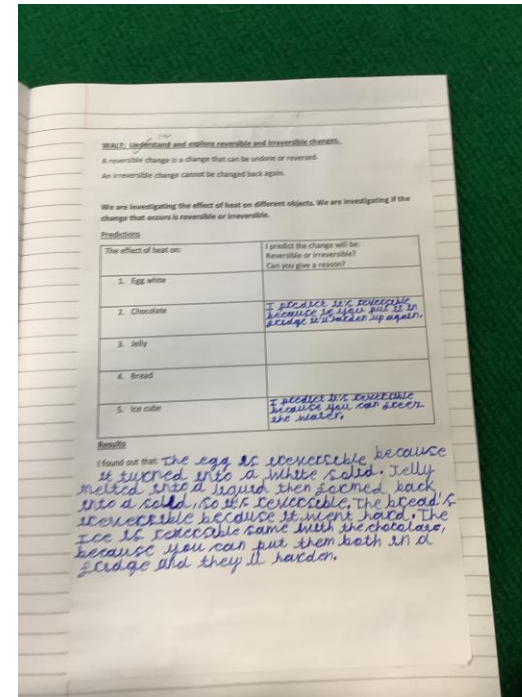 WALT: Understand and explore reversible and irreversible changes.
A reversible change is a change that can be undone or reversed.
An irreversible change cannot be changed back again.
We are investigating the effect of heat on different objects. We are investigating if the
change that occurs is reversible or irreversible.
Predictions
The effect of heat on:
I predict the change will be:
Reversible or irreversible?
Can you give a reason?
1. Egg white
2. Chocolate
I predict it's reversable
because if you put it in
fridge it'll harden up again.
3. Jelly
4. Bread
5. Ice cube
I predict it's reversable
because you can freez
the water.
Results
I found out that: The egg is ireversible because
it turned into a white solid. Jelly
melted into a liquid then formed back
into a solid, so it's reversible. The bread's
ireversible because it went hard. The
Ice is reversable same with the chocolate,
because you can put them both in a
fridge and they'll harden.